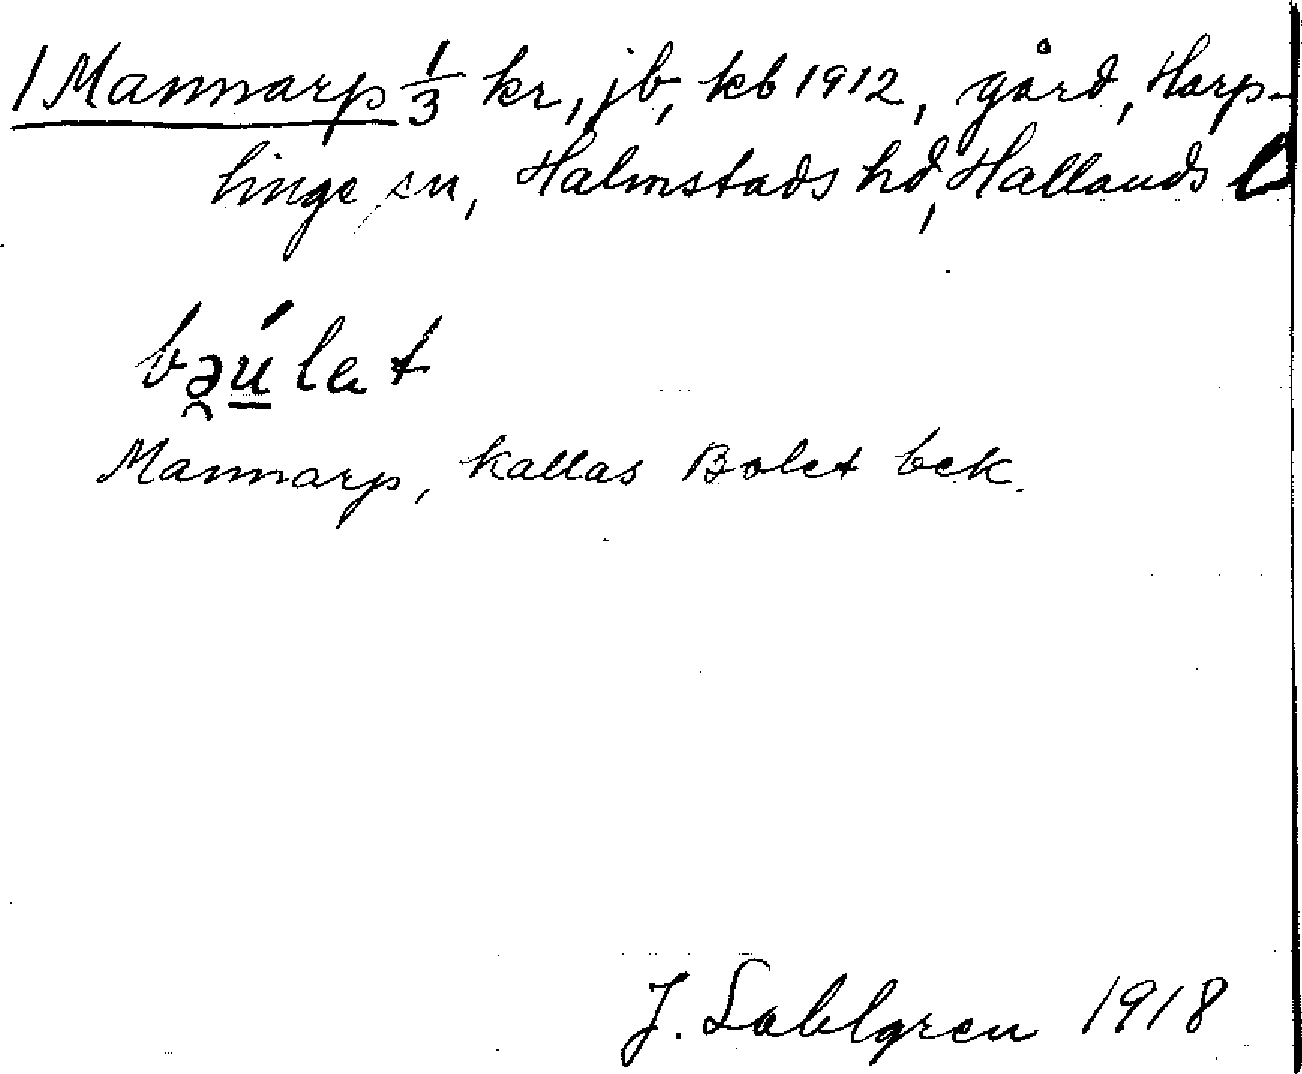 1 Mannarp 1/3 kr, jb, kb 1912, gård, Harp-
linge sn, Halmstads hd, Hallands l
bə̯ú̲let
Mannarp, kallas Bolet bek.
J. Sahlgren 1918